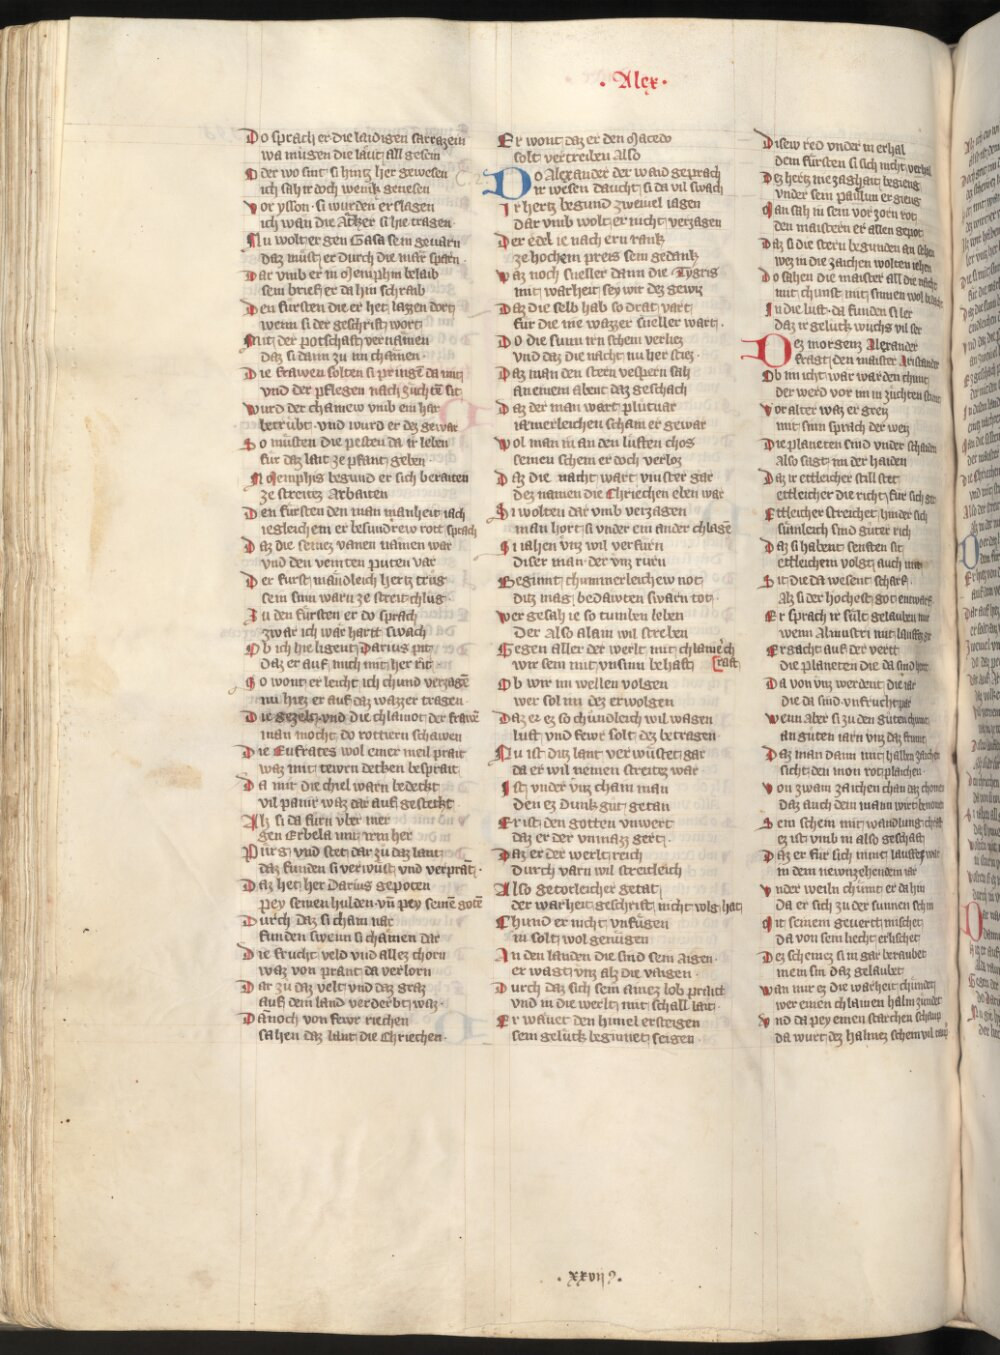 · Alex ·
Do sprach er die laidigen sarrazein
wa mügen die läut all gesein
Oder wo sint si hintz her gewesen
ich sah ir doch wenik genesen
Vor ysson · si wurden erslagen
ich wan die Ätzer si hie tragen ·
Nu wolt er gen Gasa sein geuarn
daz müst er durch die mär sparn ·
Dar vmb er in Memphim belaib
sein brief er da hin schraib
Den fürsten die er het lazzen dort
wenn si der geschrift wort
Mit der potschaft vernämen
daz si dann zu im chämen ·
Die frawen solten si pringē da mit
vnd der pflegen nach züchtē sit
Wurd der chaniew vmb ein har
betrübt · vnd wurd er dez gewar
So müsten die pesten da ir leben
für daz lait ze pfant geben ·
In Memphis begund er sich beraiten
ze streitez Arbaiten
Den fürsten den man manheit iach
iegleichem er besundrew rott sprach
Daz die seinez vanen namen war
vnd den veinten puten var
Der fürst mändleich hertz trüg
sein sun warn ze streit chlüg ·
Zu den fürsten er do sprach
zwar ich wär hartt swach
Ob ich hie ligent Darius pit
daz er auf mich mit her rit ·
So wont er leicht ich chund verzagē
nu hiez er auf daz wazzer tragen ·
Die gezelt · vnd die chlainot der frawē
man mocht do rottiern schawen
Die Eufrates wol einer meil prait
waz mit tewrn decken besprait
Da mit die chiel warn bedeckt
vil panir waz dar auf gesteckt ·
Alz si da fürn vber mer
gen Erbela mit irem her
Pürg vnd stet dar zu daz lant
daz funden si verwüst vnd verprāt ·
Daz het her Darius gepoten
pey seinen hulden · vn̄ pey seinē gotē
Durch daz si cham nar
funden swenn si chämen dar
Die frücht veld vnd allez chorn
waz von prant da verlorn
Dar zu daz velt vnd daz graz
auf dem land verderbt waz ·
Dannoch von fewr riechen
sahen daz lant die Chriechen ·
Er wont daz er den Macedo
solt vertreiben also
Do Alexander der waid gesprach
ir wesen daucht si da vil swach
Ir hertz begund zweiuel iagen
dar vmb wolt er nicht verzagen
Der edel ie nach ern rank
ze hochem preis sein gedank
Waz noch sneller dann die Tygris
mit warheit sey wir dez gewis
Daz die selb hab so drat vart
für die nie wazzer sneller wart ·
Do die sunn irn schein verliez
vnd daz die nacht nu her stiez ·
Daz man den stern vespern sah
an einem abent daz geschach
Daz der man wart plutuar
iamerleichen schain er gewar
Wol man in an den lüften chos
seinen schein er doch verloz
Daz die nacht wart vinster gar
dez namen die Chriechen eben war
Si wolten dar vmb verzagen
man hort si vnder ein ander chlagē
Si iahen vnz wil verfürn
diser man · der vnz rürn
Beginnt chummerleichew not
ditz mag bedäwten swärn tot ·
Wer gesah ie so tumben leben
der also alain wil streben
Gegen aller der werlt mit chlainē ch
wir sein mit vnsinn behaft raft
Ob wir im wellen volgen
wer sol im dez erwolgen
Daz er ez so chündleich wil wagen
luft vnd fewr solt dez betragen ·
Nu ist ditz lant verwüstet gar
da er wil nemen streitez war
Ist vnder vnz chain man
den ez dunk gut getan
Er ist den gotten vnwert
daz er der vnmazz gert ·
Daz er der werlt reich
durch varn wil streitleich
Also getorleicher getat
der warheit geschrift nicht wolg hat
Chund er nicht vnfügen
in solt wol genügen
An den landen die sind sein aigen ·
er wagt vnz alz die vaigen ·
Durch daz sich sein ainez lob prait
vnd in die werlt mit schall lait ·
Er wänet den himel ersteigen
sein gelück beginnet seigen ·
Disew red vnder in erhal
dem fürsten si sich nicht verhal
Dez hertz nie zaghait begieng
vnder sein paulun er gieng
Man sah in sein vor zorn rot
den maistern er allen gepot
Daz si die stern begunden an sehen
wez in die zaichen wolten iehen
Do sahen die maister all die nacht
mit chunst mit sinnen wol bedacht
In die luft · da funden si ler
daz ir gelück wuchs vil ser
Dez morgenz Alexander
fragt den maister Aristander
Ob im icht war war den chunt
der werd vor im in züchten stunt
Vor alter waz er greiz
mit sinn sprach der weiz
Die planeten sind vnder schaiden
Also sagt im der haiden
Daz ir ettleicher still stet
ettleicher die richt für sich get
Ettleicher streichet hinder sich
sümleich sind güter rich
Daz si habent senften sit
ettleichem volgt auch mit
Sit die da wesent scharf ·
Alz si der hochest got entwarf
Er sprach ir sült gelauben mir
wenn Almustri mit lauffes gir
Ergacht auf der vertt
die planeten die da sind hertt
Da von vnz werdent die iar
die da sind vnfruchtpär
Wenn aber si zu den güten chumt
an güten iarn vnz daz frumt
Daz man dann mit halben zaichen
sicht den mon rot plaichen ·
Von zwain zaichen chan daz chomen
daz auch dem mann wirt benomen
Sein schein mit wandlung chraft
ez ist vmb in also geschaft
Daz er für sich nimt lauffez war
in dem newnzehendem iar
Vnder weiln chümt er da hin
da er sich zu der sunnen schin
Mit seinem geuert mischet
da von sein liecht erlischet
Dez scheinez si in gar beraubet
mein sin daz gelaubet
Wan mir ez die warheit chündet
wer einen chlainen halm zündet
Vnd da pey einen starchen schaup
da wurt dez halmez schein vil taup
· xxvij 9 ·